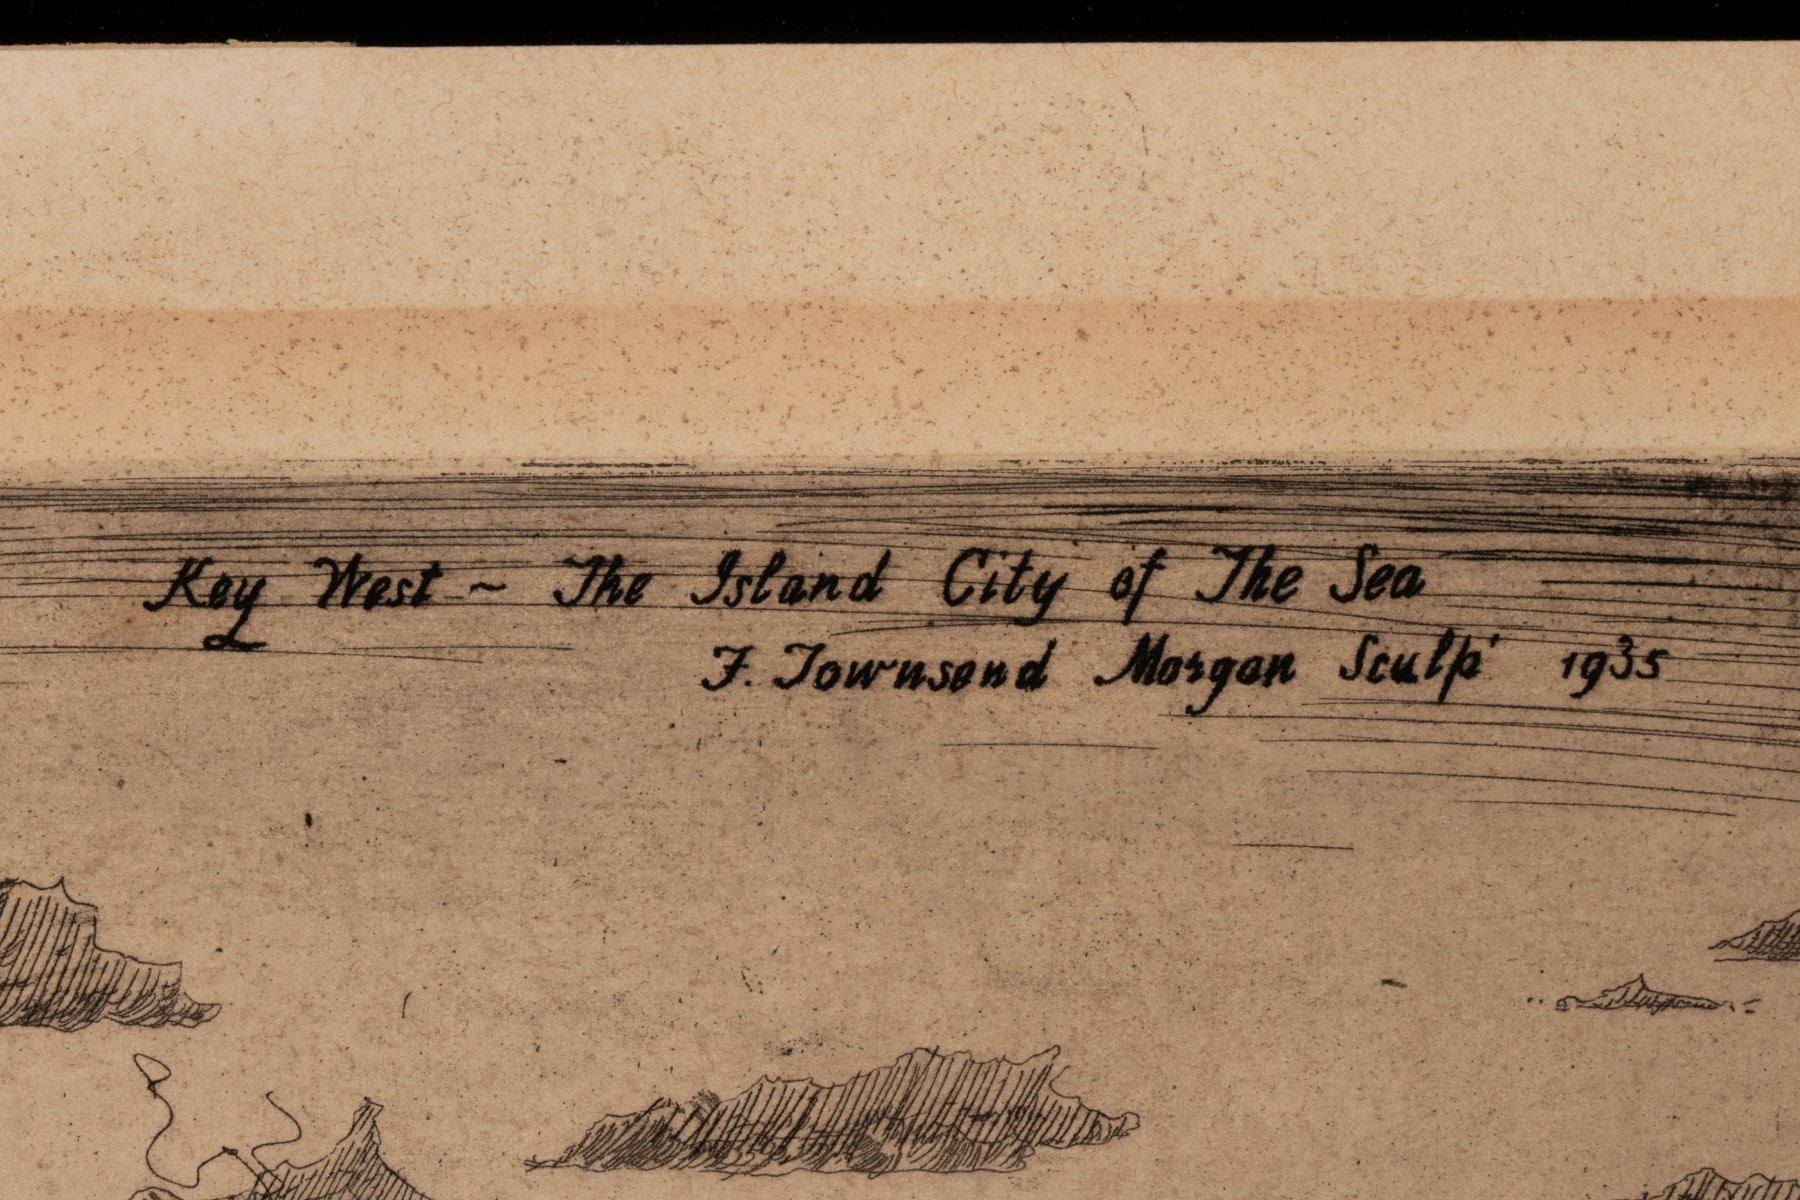 Key West ~ The Island City of The Sea
F. Townsend Morgan Sculp' 1935